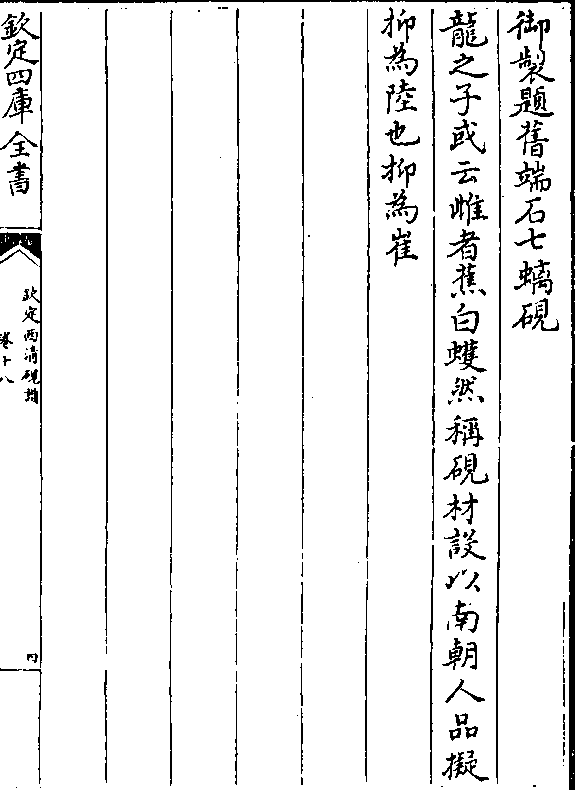 御製題舊端石七螭硯
龍之子或云惟者蕉白蠖然稱硯材設以南朝人品擬
抑為陸也抑為崔
欽定四庫全書
欽定西清硯譜
卷十八
四